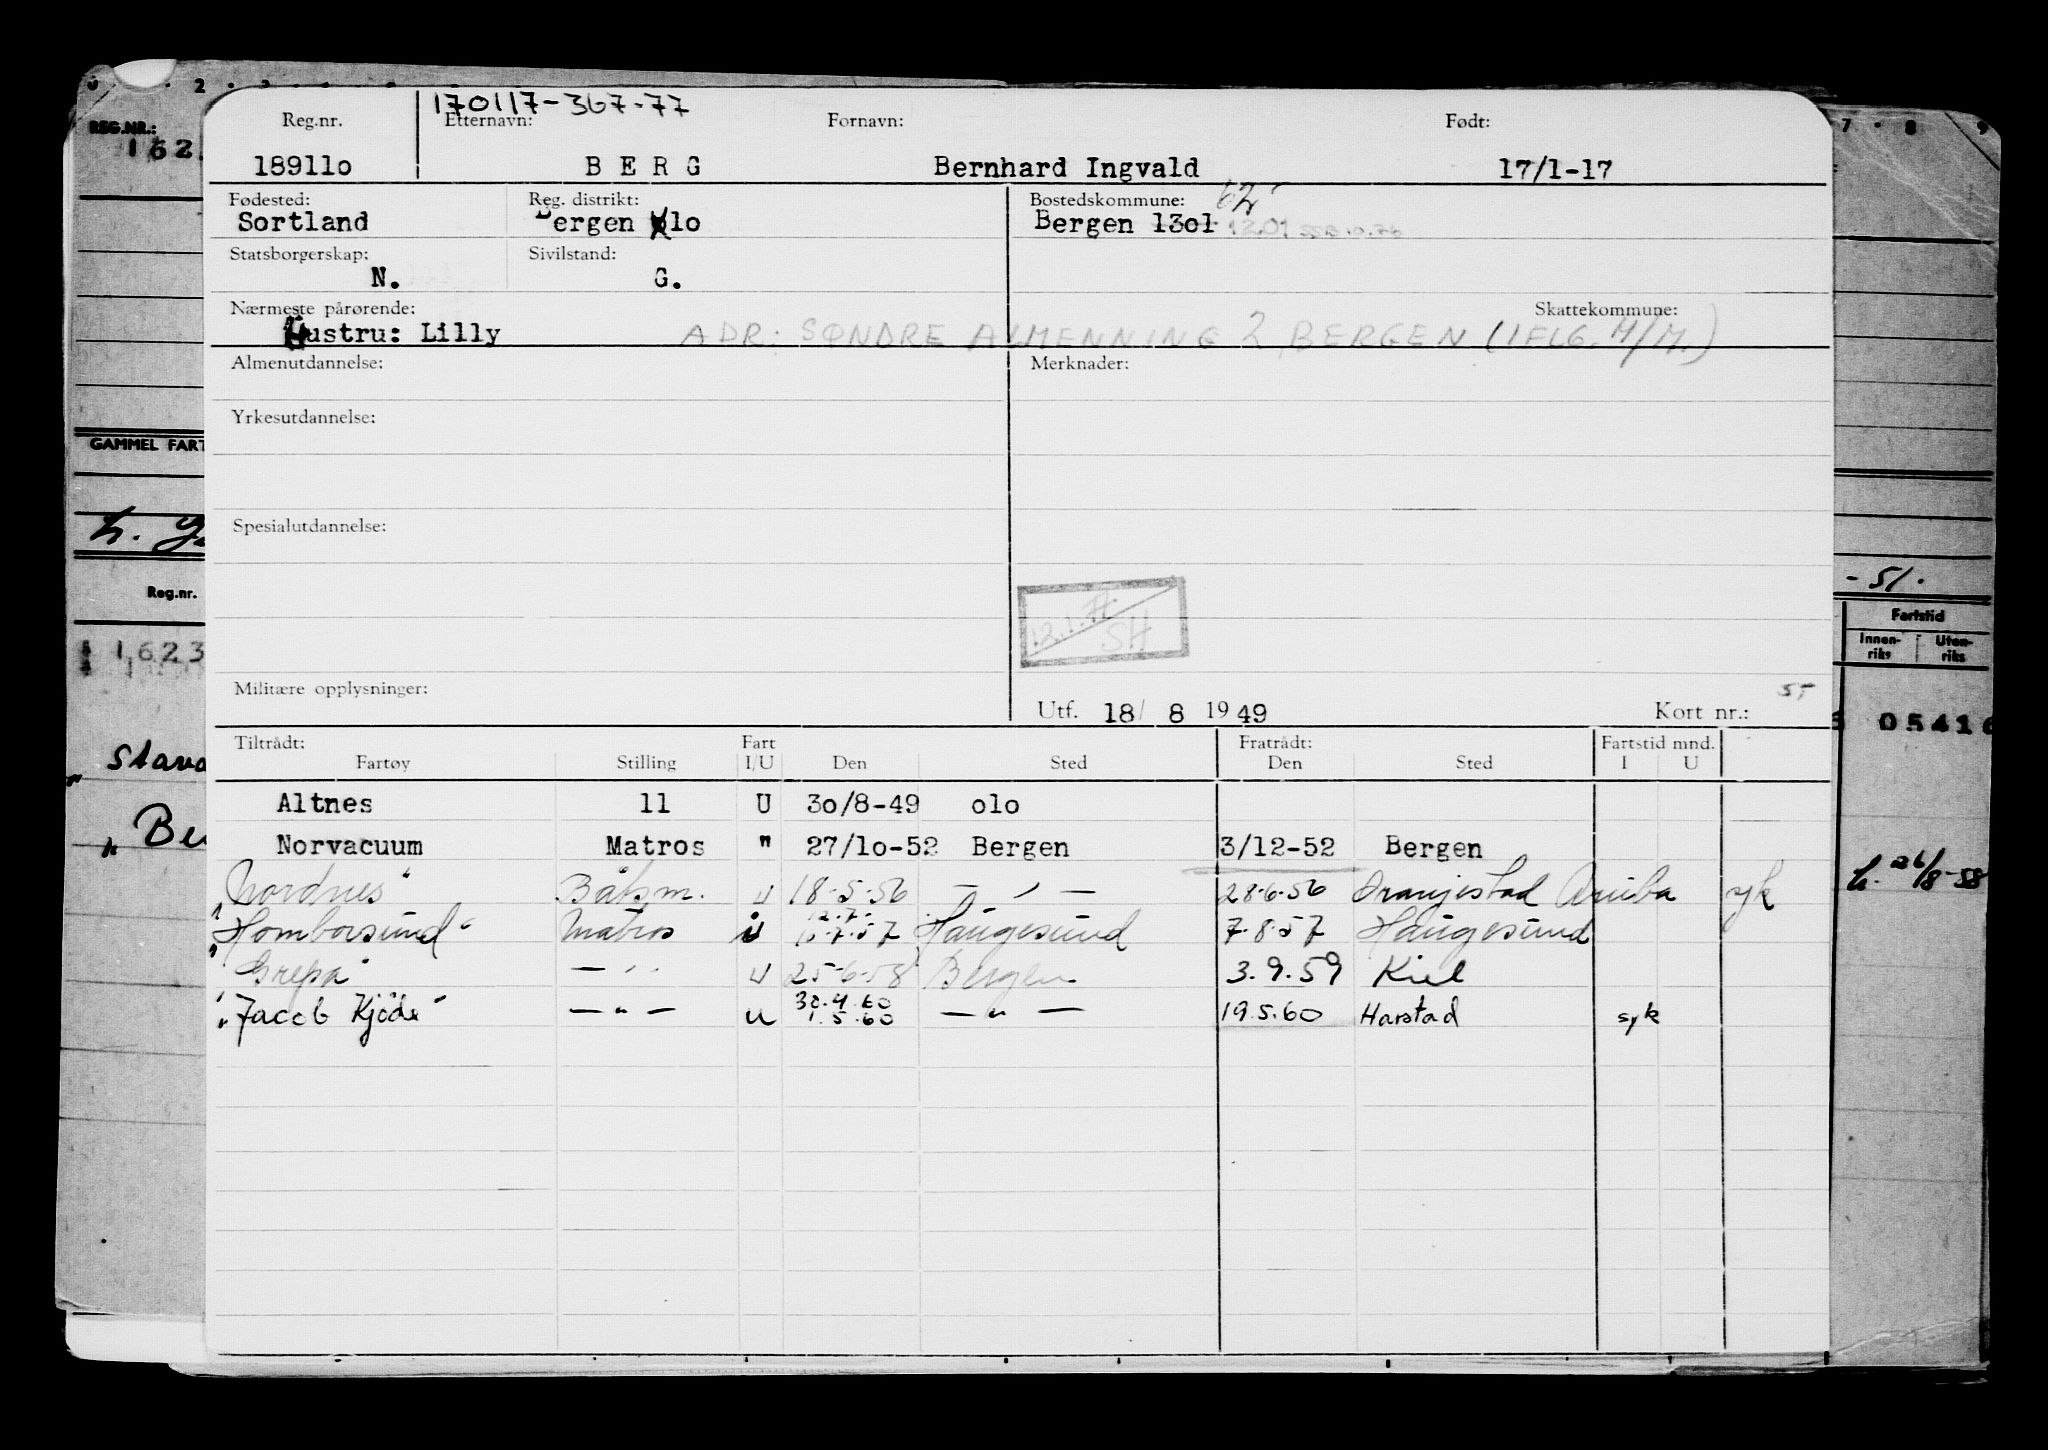 170117-367-77
Reg.nr. Etternavn: Fornavn: Født:
18911o B E R G Bernhard Ingvald 17/1-17
Fødested: Reg. distrikt: Bostedskommune: 62
Sortland Bergen olo Bergen 13o1 1201
Statsborgerskap: Sivilstand:
N. G.
Nærmeste pårørende: Skattekommune:
Hustru: Lilly ADR: SØNDRE ALMENNING 2, BERGEN (IFLG. M/M.)
Almenutdannelse: Merknader:
Yrkesutdannelse:
Spesialutdannelse:
12.1.77
SH
Militære opplysninger:
Utf. 18/ 8 1949 Kort nr.:
Tiltrådt: Fart Fratrådt: Fartstid mnd.
Fartøy Stilling I/U Den Sted Den Sted I U
Altnes 11 U 3o/8-49 olo
Norvacuum Matros " 27/1o-52 Bergen 3/12-52 Bergen
"Nordnes" Båtsm. u 18-5-56 — " — 28-6-56 Oranjestad Aruba syk
"Homborsund" Matros u 12.7.57 Haugesund 7-8-57 Haugesund
"Grepa" — " u 25-6-58 Bergen 3.9.59 Kiel
"Jacob Kjöde" — " — u 30.4.60 1.5.60 — " — 19.5.60 Harstad syk
REG.NR.:
162
GAMMEL FART
Reg.nr.
1623
Stava
"Be
7 8 9
-51.
Fartstid
Innen-riks Uten-riks
05416
26/8-58